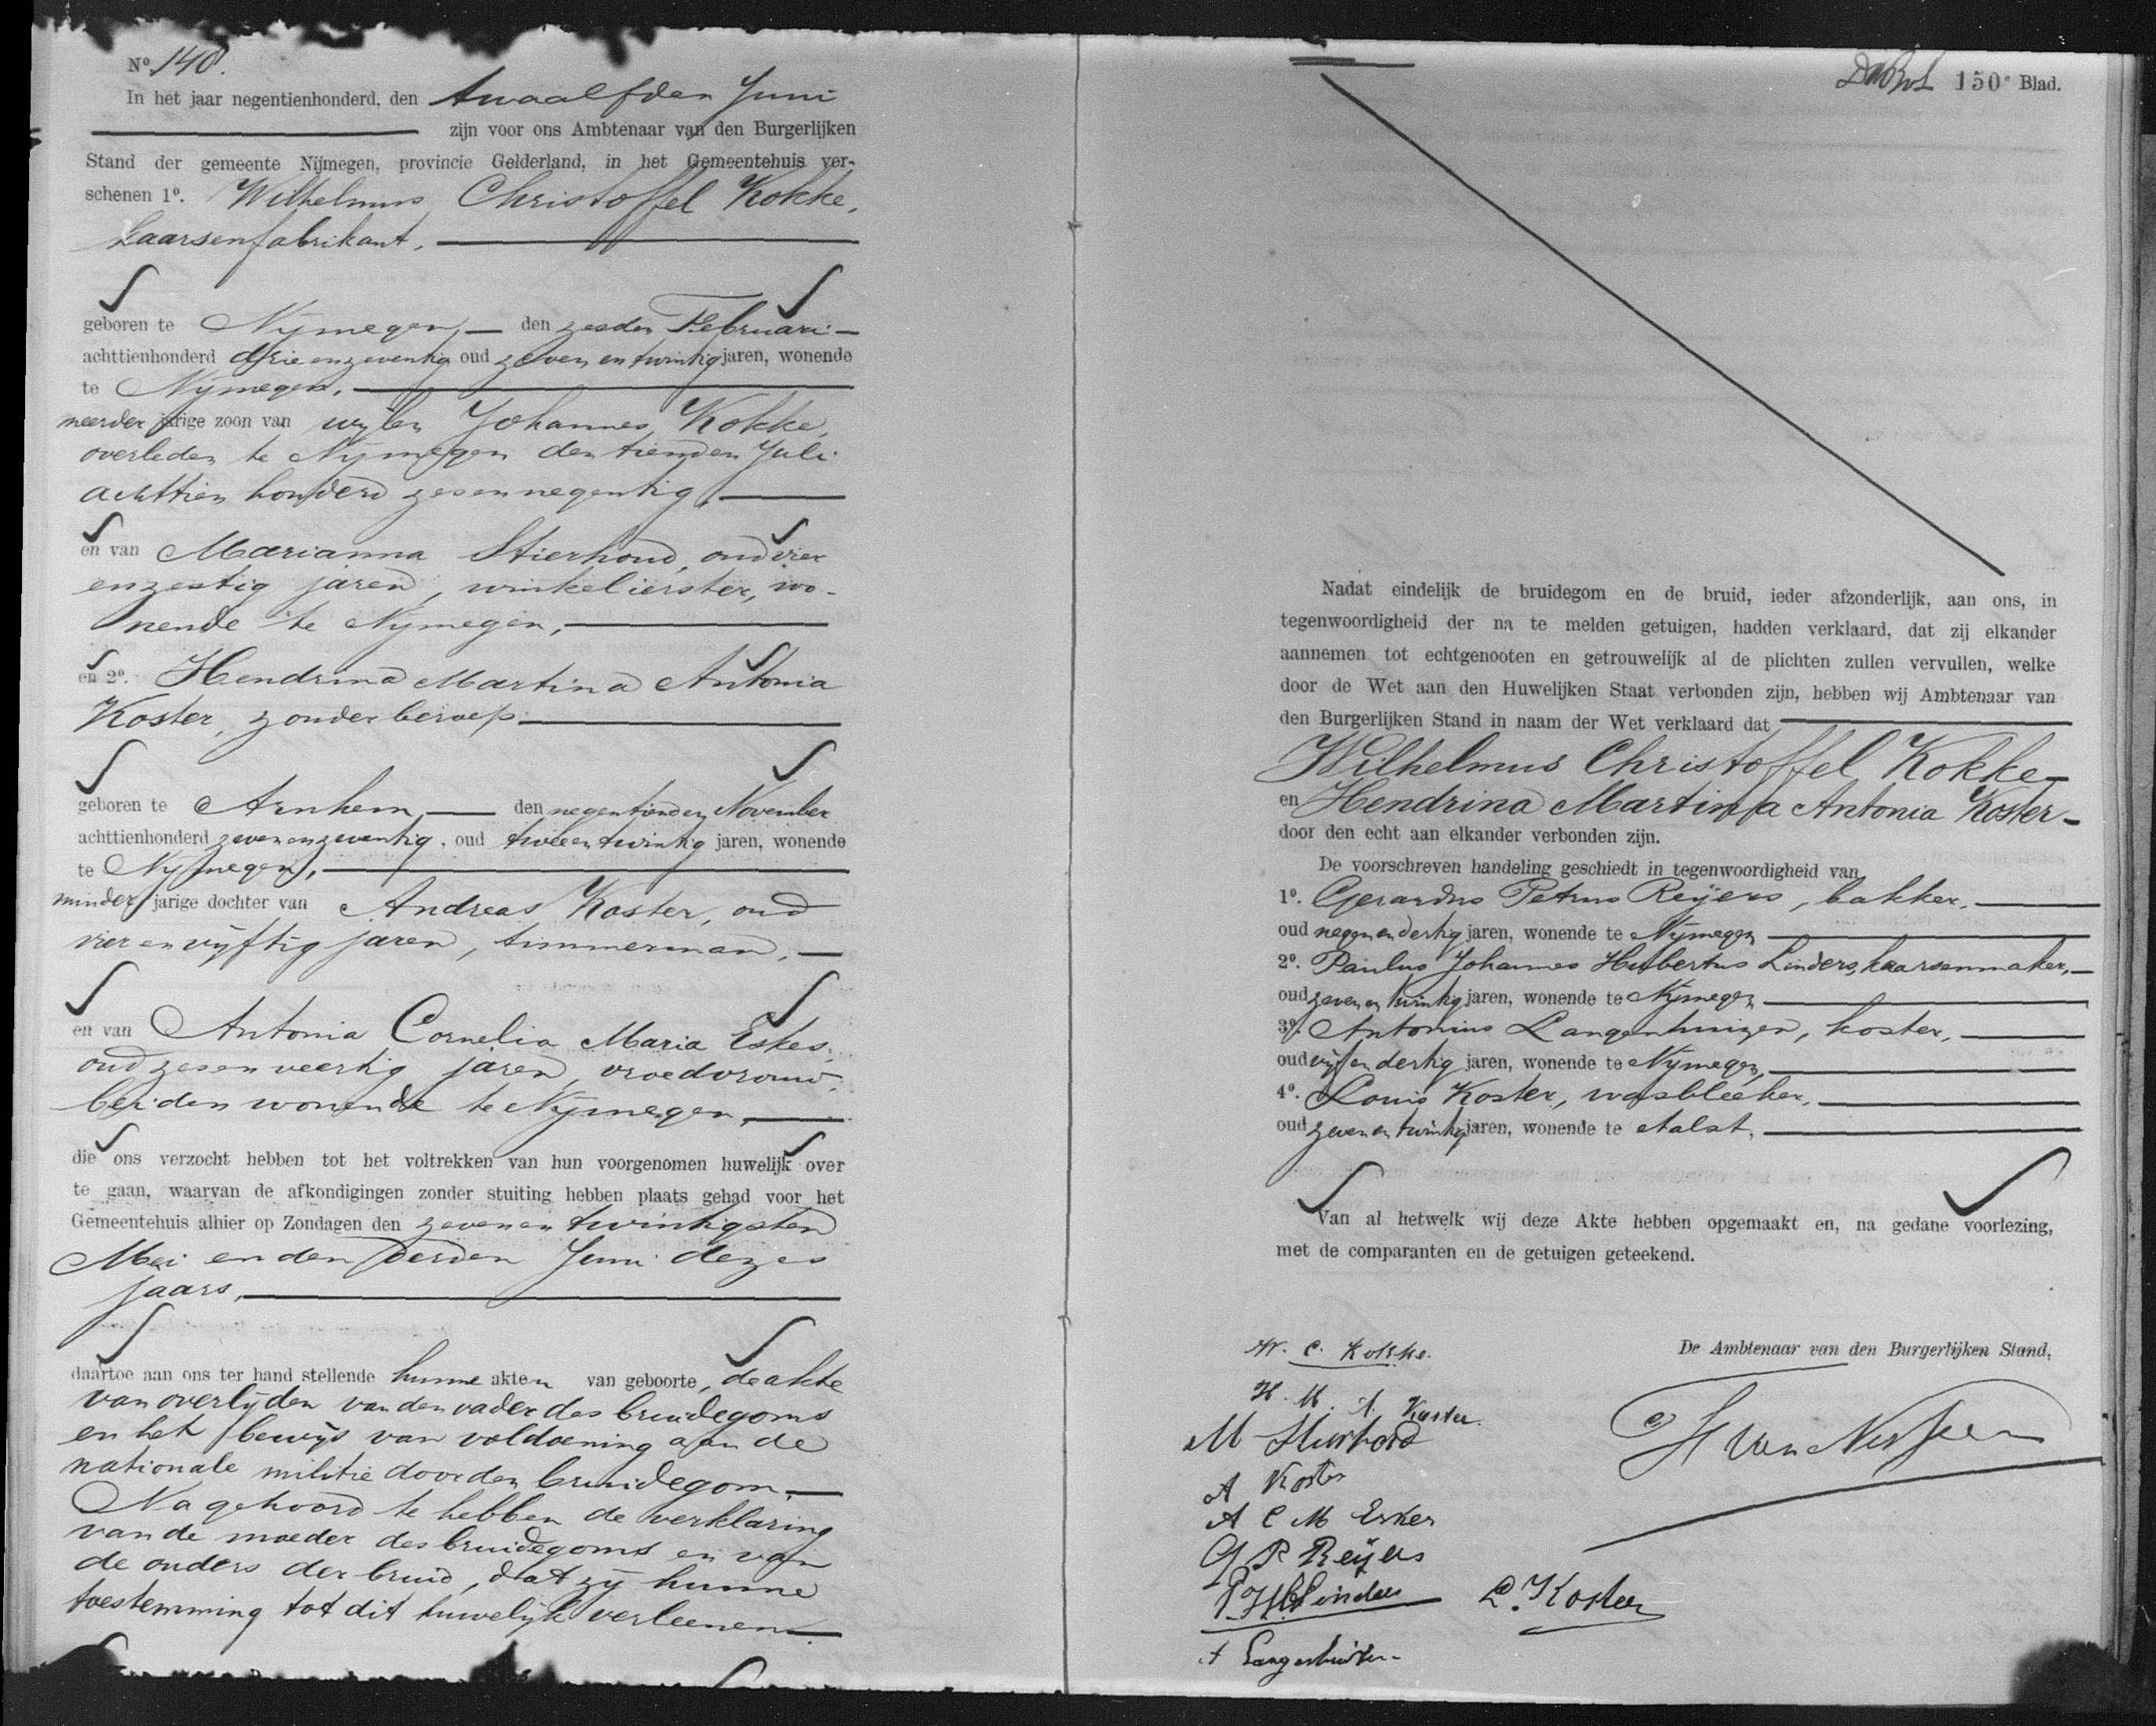 No. 140.
In het jaar negentienhonderd, den twaalfden Juni
zijn voor ons Ambtenaar van den Burgerlijken
Stand der gemeente Nijmegen, provincie Gelderland, in het Gemeentehuis ver-
schenen 1o. Wilhelmus Christoffel Kokke,
Laarsenfabrikant,
geboren te Nijmegen, den zesden Februari
achttienhonderd drie en zeventig oud zeven en twintig jaren, wonende
te Nijmegen,
meerder jarige zoon van wijlen Johannes Kokke,
overleden te Nijmegen den tienden Juli
achttien honderd zes en negentig,
en van Marianna Stierhoud, oud vier
en zestig jaren, winkelierster, wo-
nende te Nijmegen,
en 2o. Hendrina Martina Antonia
Koster, zonder beroep
geboren te Arnhem, den negentienden November
achttienhonderd zeven en zeventig, oud twee en twintig jaren, wonende
te Nijmegen,
minder jarige dochter van Andreas Koster, oud
vier en vijftig jaren, timmerman,
en van Antonia Cornelia Maria Eskes,
oud zes en veertig jaren, vroedvrouw,
beiden wonende te Nijmegen,
die ons verzocht hebben tot het voltrekken van hun voorgenomen huwelijk over
te gaan, waarvan de afkondigingen zonder stuiting hebben plaats gehad voor het
Gemeentehuis alhier op Zondagen den zeven en twintigsten
Mei en den derden Juni dezes
jaars,
daartoe aan ons ter hand stellende hunne akten van geboorte, de akte
van overlijden van den vader des bruidegoms
en het bewijs van voldoening aan de
nationale militie door den bruidegom.
Na gehoord te hebben de verklaring
van de moeder des bruidegoms en van
de ouders der bruid, dat zij hunne
toestemming tot dit huwelijk verleenen
150e Blad.
Nadat eindelijk de bruidegom en de bruid, ieder afzonderlijk, aan ons, in
tegenwoordigheid der na te melden getuigen, hadden verklaard, dat zij elkander
aannemen tot echtgenooten en getrouwelijk al de plichten zullen vervullen, welke
door de Wet aan den Huwelijken Staat verbonden zijn, hebben wij Ambtenaar van
den Burgerlijken Stand in naam der Wet verklaard dat
Wilhelmus Christoffel Kokke
en Hendrina Martina Antonia Koster
door den echt aan elkander verbonden zijn.
De voorschreven handeling geschiedt in tegenwoordigheid van
1o. Gerardus Petrus Reijers, bakker,
oud negen en dertig jaren, wonende te Nijmegen
2o. Paulus Johannes Hubertus Linders, kaarsenmaker,
oud zeven en twintig jaren, wonende te Nijmegen
3o. Antonius Langenhuizen, koster,
oud vijf en dertig jaren, wonende te Nijmegen,
4o. Louis Koster, wasbleeker,
oud zeven en twintig jaren, wonende te Aalst,
Van al hetwelk wij deze Akte hebben opgemaakt en, na gedane voorlezing,
met de comparanten en de getuigen geteekend.
De Ambtenaar van den Burgerlijken Stand,
W. C. Kokke.
H. M. A. Koster.
M Stierhoud
A Koster
A C M Eskes
G P Reijers
P.J.H. Linders L. Koster
A Langenhuizen